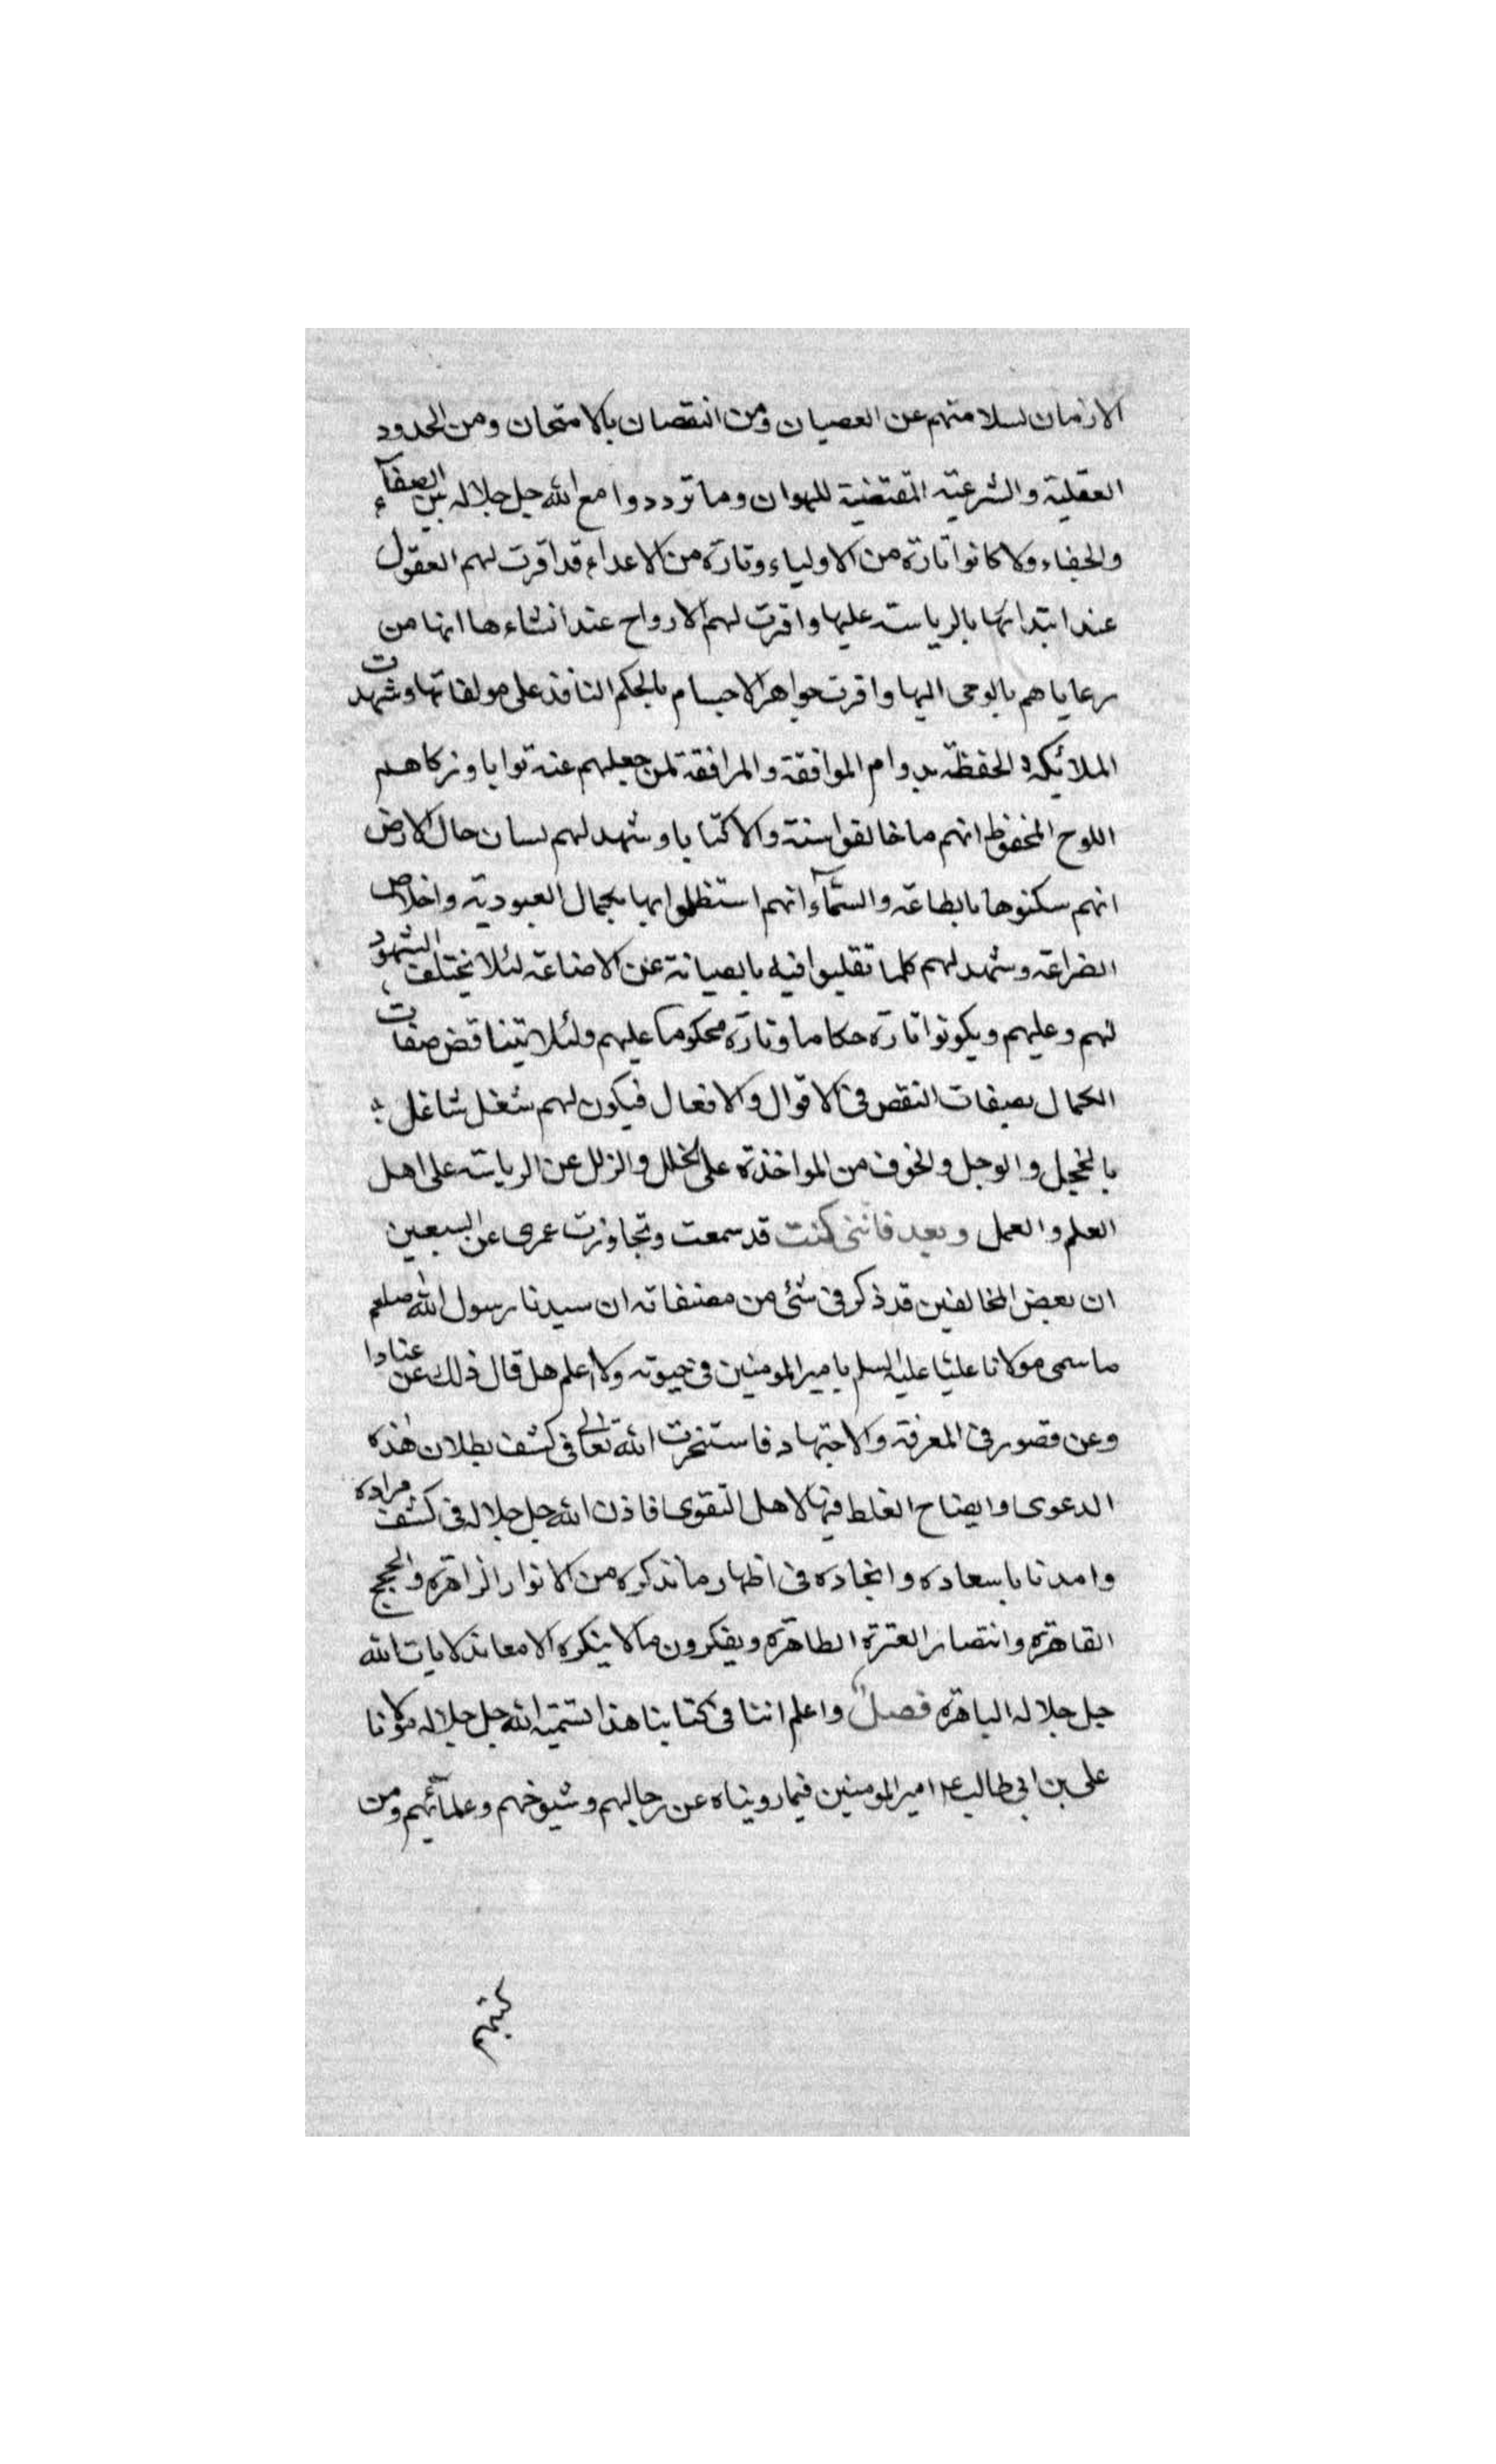 الازمان لسلامتهم عن العصيان ومن النقصان بالامتحان ومن الحدود
العقلية والشرعية المقتضية للهوان وما ترددوا مع الله جل جلاله بين الصفآء
والجفاء ولا كانوا تارة من الاولياء وتارة من الاعداء قد اقرت لهم العقول
عند ابتدائها بالرياسة عليها واقرت لهم الارواح عند انشاءها انها من
رعاياهم بالوحى اليها واقرت جواهر الاجسام بالحكم النافذ على مولفاتها وشهدت
الملائكة الحفظة بدوام الموافقة والمرافقة لمن جعلهم عنه نوابا وزكاهم
اللوح المحفوظ انهم ما خالفوا سنة ولا كتابا وشهد لهم لسان حال الارض
انهم سكنوها بالطاعة والسمآء انهم استظلوا بها بجمال العبودية واخلاص
الضراعة وشهد لهم كلما تقلبوا فيه بالصيانة عن الاضاعة لئلا يختلف الشهود
لهم وعليهم ويكونوا تارة حكاما وتارة محكوما عليهم ولئلا يتناقض صفات
الكمال بصفات النقص فى الاقوال والافعال فيكون لهم شغل شاغل
بالخجل والوجل والخوف من المواخذة على الخلل والزلل عن الرياسة على اهل
العلم والعمل وبعد فاننى كنت قد سمعت وتجاوزت عمرى عن السبعين
ان بعض المخالفين قد ذكر فى شئ من مصنفاته ان سيدنا رسول الله صلعم
ما سمى مولانا عليا عليه السلم بامير المومنين فى حيوته ولا اعلم هل قال ذلك عن عنادا
وعن قصور فى المعرفة والاجتهاد فاستخرت الله تعالى فى كشف بطلان هذه
الدعوى وايضاح الغلط فيها لاهل التقوى فاذن الله جل جلاله فى كشف مراده
وامدنا باسعاده وانجاده فى اظهار ما نذكره من الانوار الزاهرة والحجج
القاهرة وانتصار العترة الطاهرة ويفكرون ما لا ينكره الا معاند لايات الله
جل جلاله الباهرة فصل واعلم اننا فى كتابنا هذا تسمية الله جل جلاله مولانا
على بن ابى طالب ع امير المومنين فيما رويناه عن رجالهم وشيوخهم وعلمآئهم ومن
كتبهم